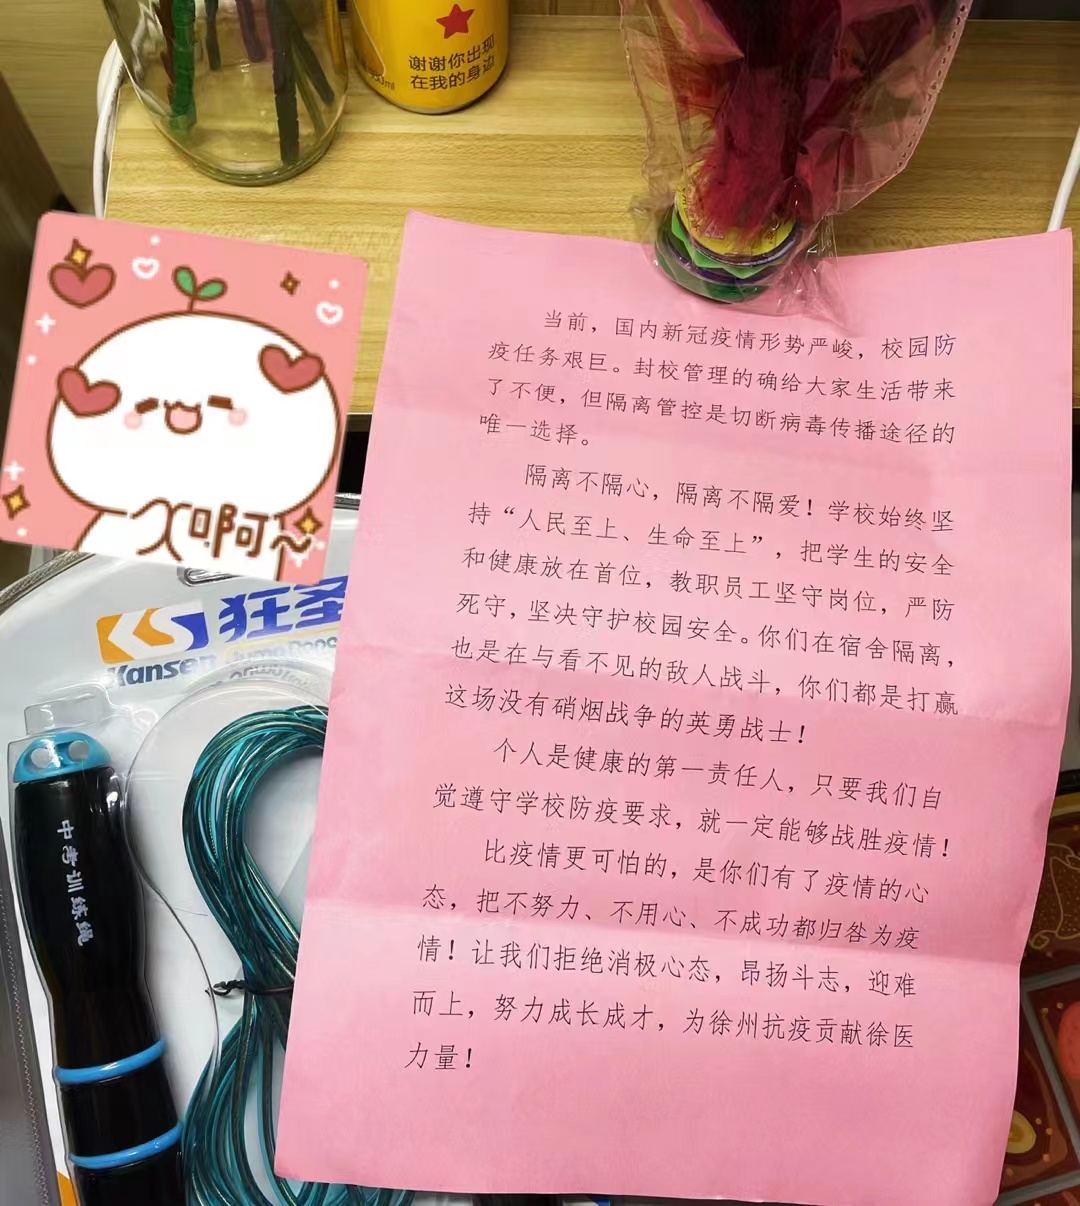 谢谢你出现
在我的身边
当前，国内新冠疫情形势严峻，校园防
疫任务艰巨。封校管理的确给大家生活带来
了不便，但隔离管控是切断病毒传播途径的
唯一选择。
隔离不隔心，隔离不隔爱！学校始终坚
持“人民至上、生命至上”，把学生的安全
和健康放在首位，教职员工坚守岗位，严防
死守，坚决守护校园安全。你们在宿舍隔离，
也是在与看不见的敌人战斗，你们都是打赢
这场没有硝烟战争的英勇战士！
个人是健康的第一责任人，只要我们自
觉遵守学校防疫要求，就一定能够战胜疫情！
比疫情更可怕的，是你们有了疫情的心
态，把不努力、不用心、不成功都归咎为疫
情！让我们拒绝消极心态，昂扬斗志，迎难
而上，努力成长成才，为徐州抗疫贡献徐医
力量！
狂圣
Kansen Jump Rope
中考训练绳